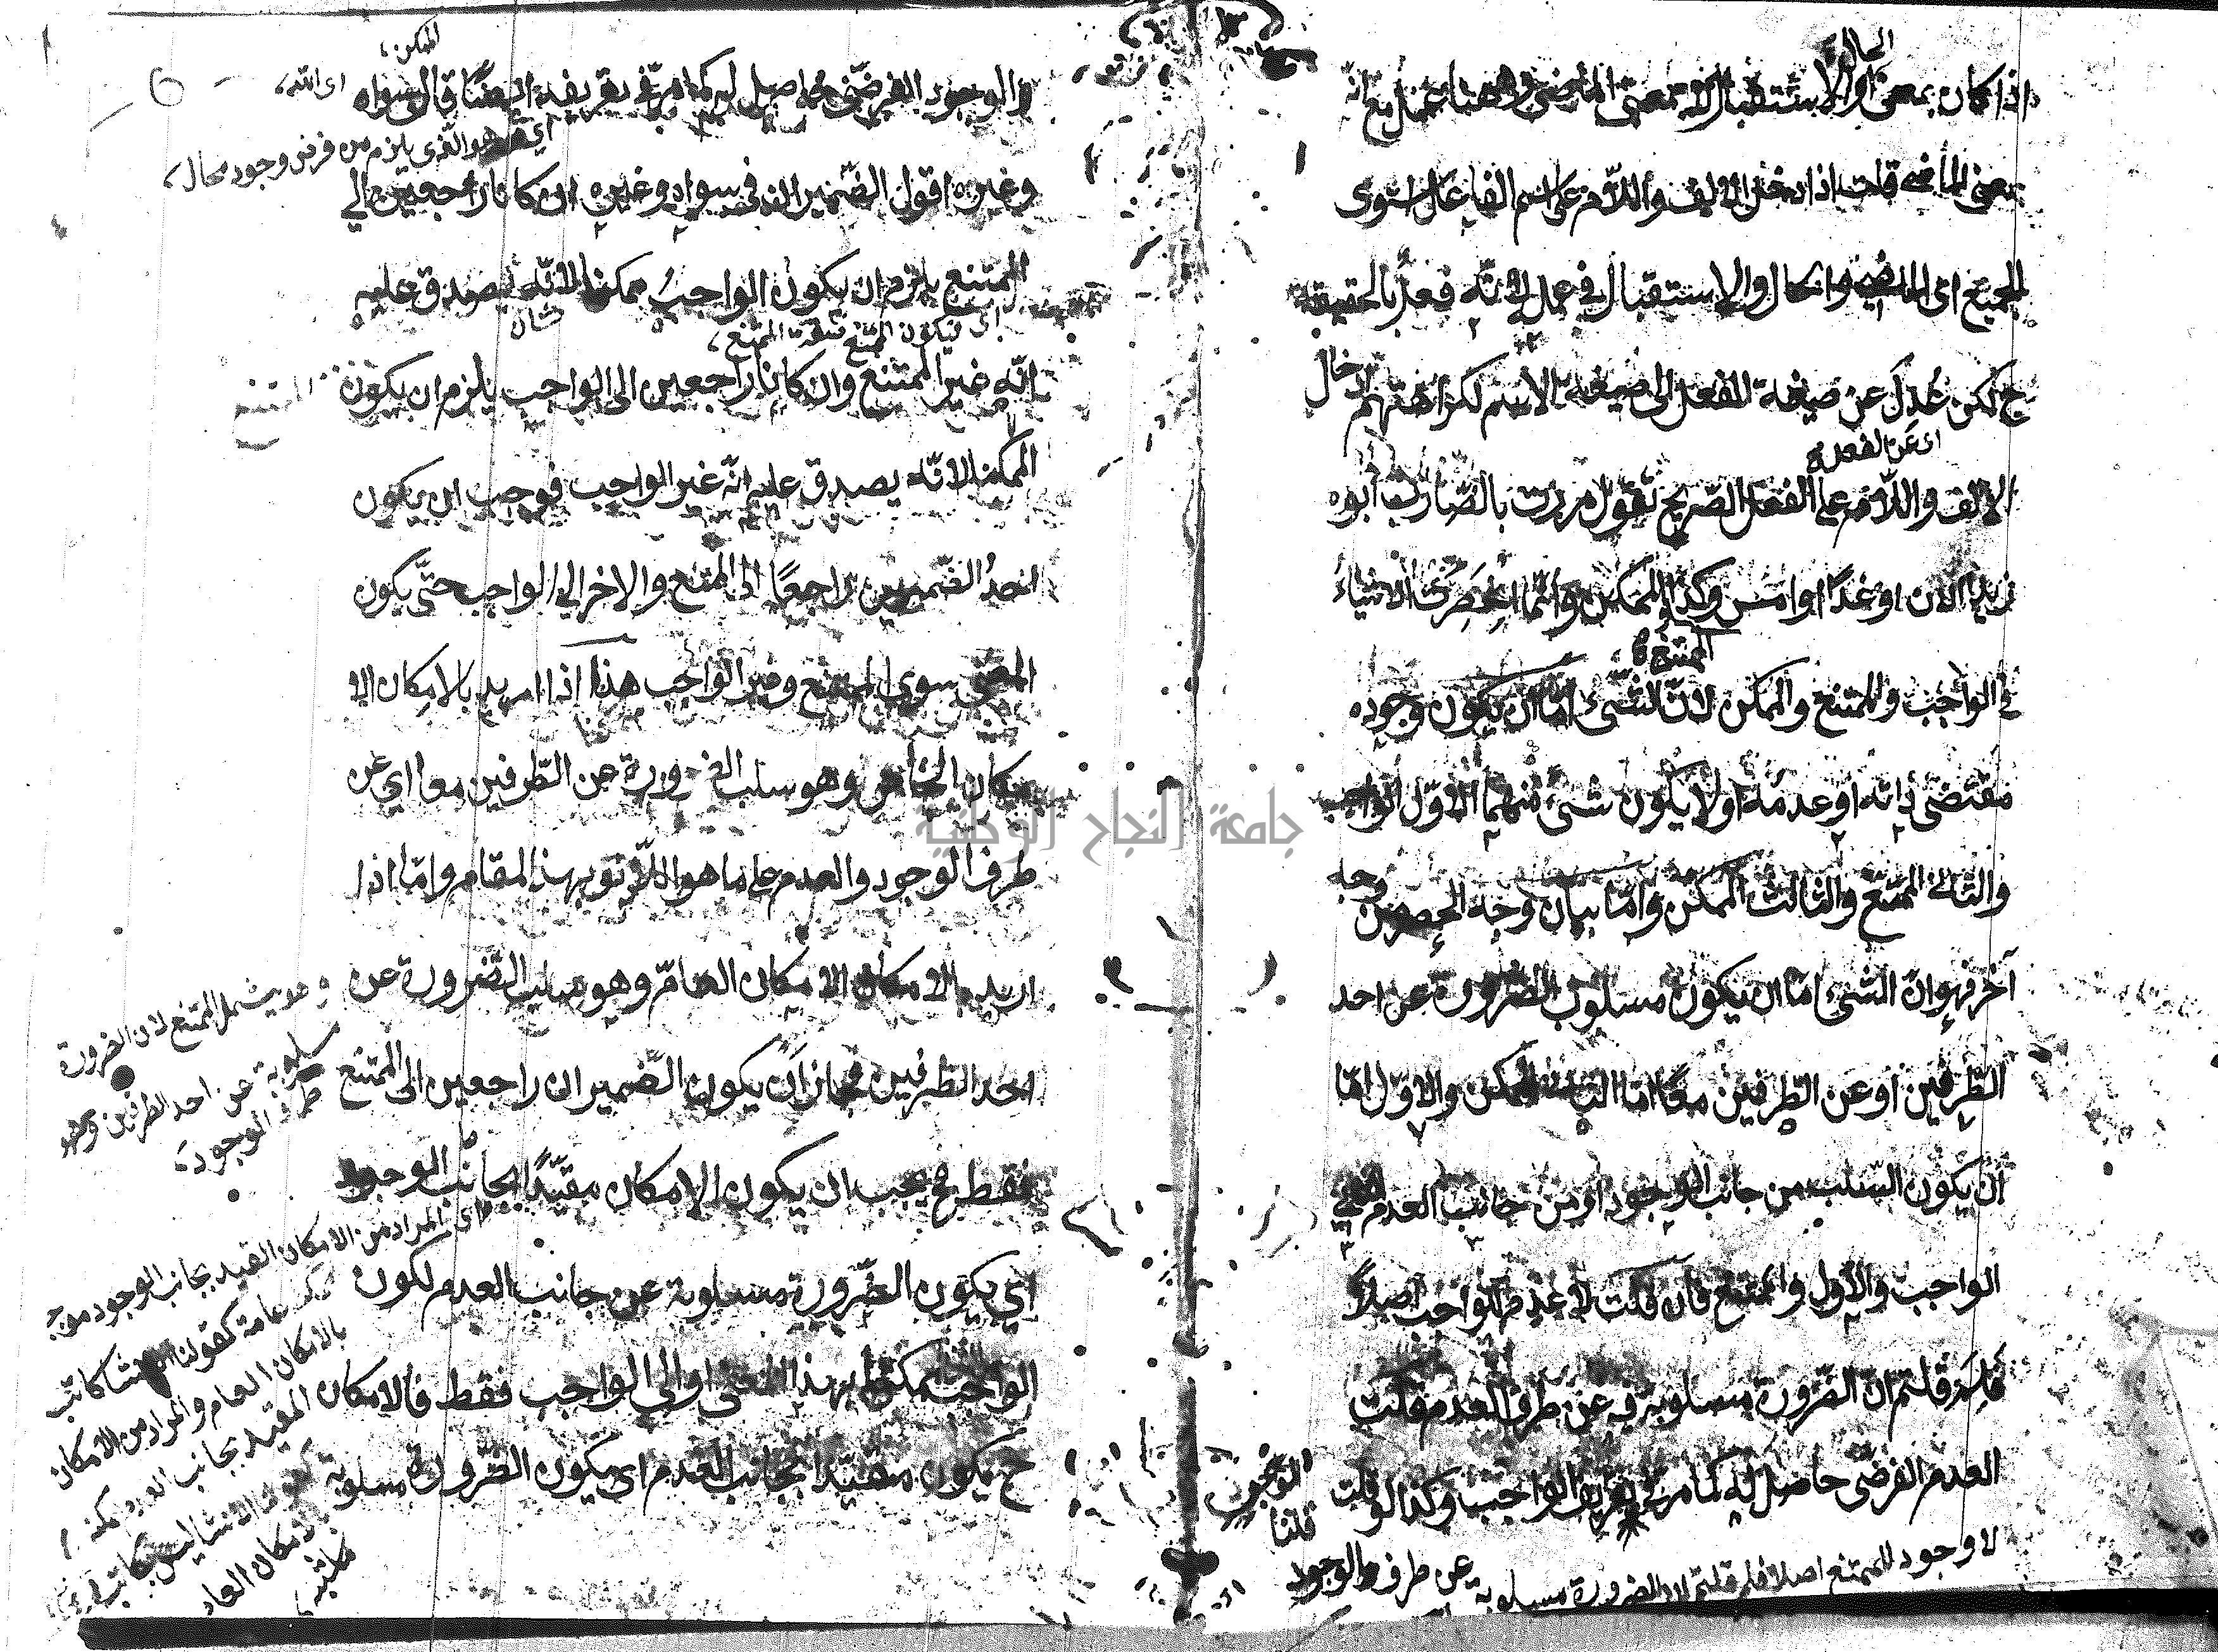 الحال
اذا كان بمعنى او الاستقبال لانه بمعنى الماضى وههنا عمل مع انه
بمعنى الماضى قلت اذا دخل الالف واللام على اسم الفاعل استوى
الجميع اى الماضى والحال والاستقبال فى عمله لانه فعل بالحقيقة
ح لكن عُدِلَ عن صيغة الفعل الى صيغة الاسم لكراهتهم ادخال
اى عن الفعل
الالف واللام على الفعل الصريح تقول مررت بالضارب ابوه
زيدا الان او غدًا او امس وكذا الممكن وانما انحصرت الاشياء
الممتنع
فى الواجب والممتنع والممكن لان الشئ اما ان يكون وجوده
مقتضى ذاته او عدمه او لا يكون شئ منهما الاول الواجب
والثانى الممتنع والثالث الممكن واما بيان وجه الحصر من وجه
آخر فهو ان الشئ اما ان يكون مسلوب الضرورة عن احد
الطرفين او عن الطرفين معًا اما الثانى الممكن والاول اما
ان يكون السلب من جانب الوجود او من جانب العدم الثانى
الواجب والاول والممتنع فان قلت لا عدم للواجب اصلاً
فلم قلتم ان الضرورة مسلوبة فيه عن طرف العدم قلت
العدم الفرضى حاصل له كما مر فى تعريف الواجب وكذا لو قلت
لا وجود للممتنع اصلا فلم قلتم ان الضرورة مسلوبة عن طرف الوجود
قلنا
الوجود
و الوجود الفرضى حاصل له كما مر فى تعريفه ايضًا قال سواه
الممكن
اى الله
اى هو الذى يلزم من فرض وجوده محال
وغيره اقول الضميران فى سواه وغيره ان كانا راجعين الى
الممتنع يلزم ان يكون الواجبُ ممكنا لانه يصدق عليه
اى فيكون الممتنع
انه غير الممتنع وان كانا راجعين الى الواجب يلزم ان يكون الممتنع
الممكن لانه يصدق عليه انه غير الواجب فوجب ان يكون
احدُ الضميرين راجعًا الى الممتنع والاخر الى الواجب حتى يكون
المعنى سوى الممتنع وغير الواجب هذا اذا اريد بالامكان الا
مكان الخاص وهو سلب الضرورة عن الطرفين معا اى عن
طرف الوجود والعدم على ما هو اللائق بهذا المقام واما اذا
اريد بالامكان الامكان العام وهو سلب الضرورة عن
احد الطرفين فجاز ان يكون الضميران راجعين الى الممتنع
فقط فح يجب ان يكون الامكان مقيدًا بجانب الوجود
اى يكون الضرورة مسلوبة عن جانب العدم لكون
الواجب ممكنا بهذا المعنى او الى الواجب فقط فالامكان
ح يكون مقيدا بجانب العدم اى يكون الضرورة مسلوبة
وهو يشمل الممتنع لان الضرورة
مسلوبة عن احد الطرفين وهو
طرف الوجود
اى المراد من الامكان المقيد بجانب الوجود
عامة كقولنا كاتب
بالامكان العام والمراد من الامكان
المقيد بجانب العدم
ليس بكاتب
بالامكان العام